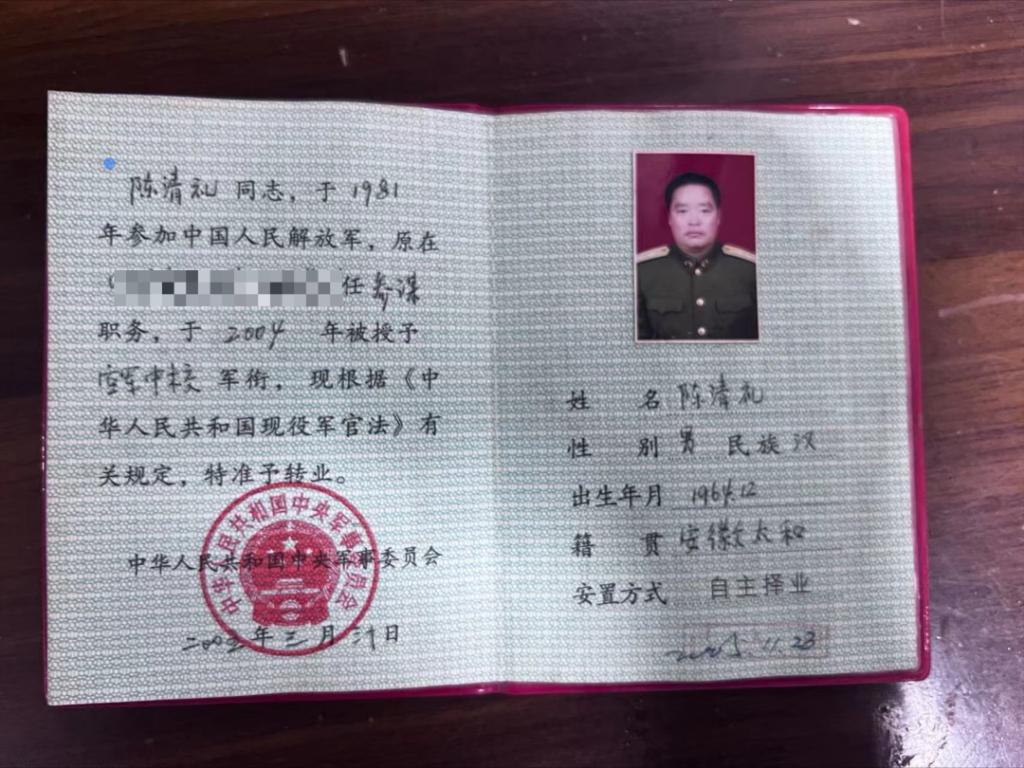 陈清礼 同志，于 1981
年参加中国人民解放军，原在
任 参谋
职务，于 2004 年被授予
空军中校 军衔，现根据《中
华人民共和国现役军官法》有
关规定，特准予转业。
中华人民共和国中央军事委员会
中华人民共和国中央军事委员会
年 三 月 日
姓 名 陈清礼
性 别 男 民族 汉
出生年月 1964.12
籍 贯 安徽太和
安置方式 自主择业
11.23